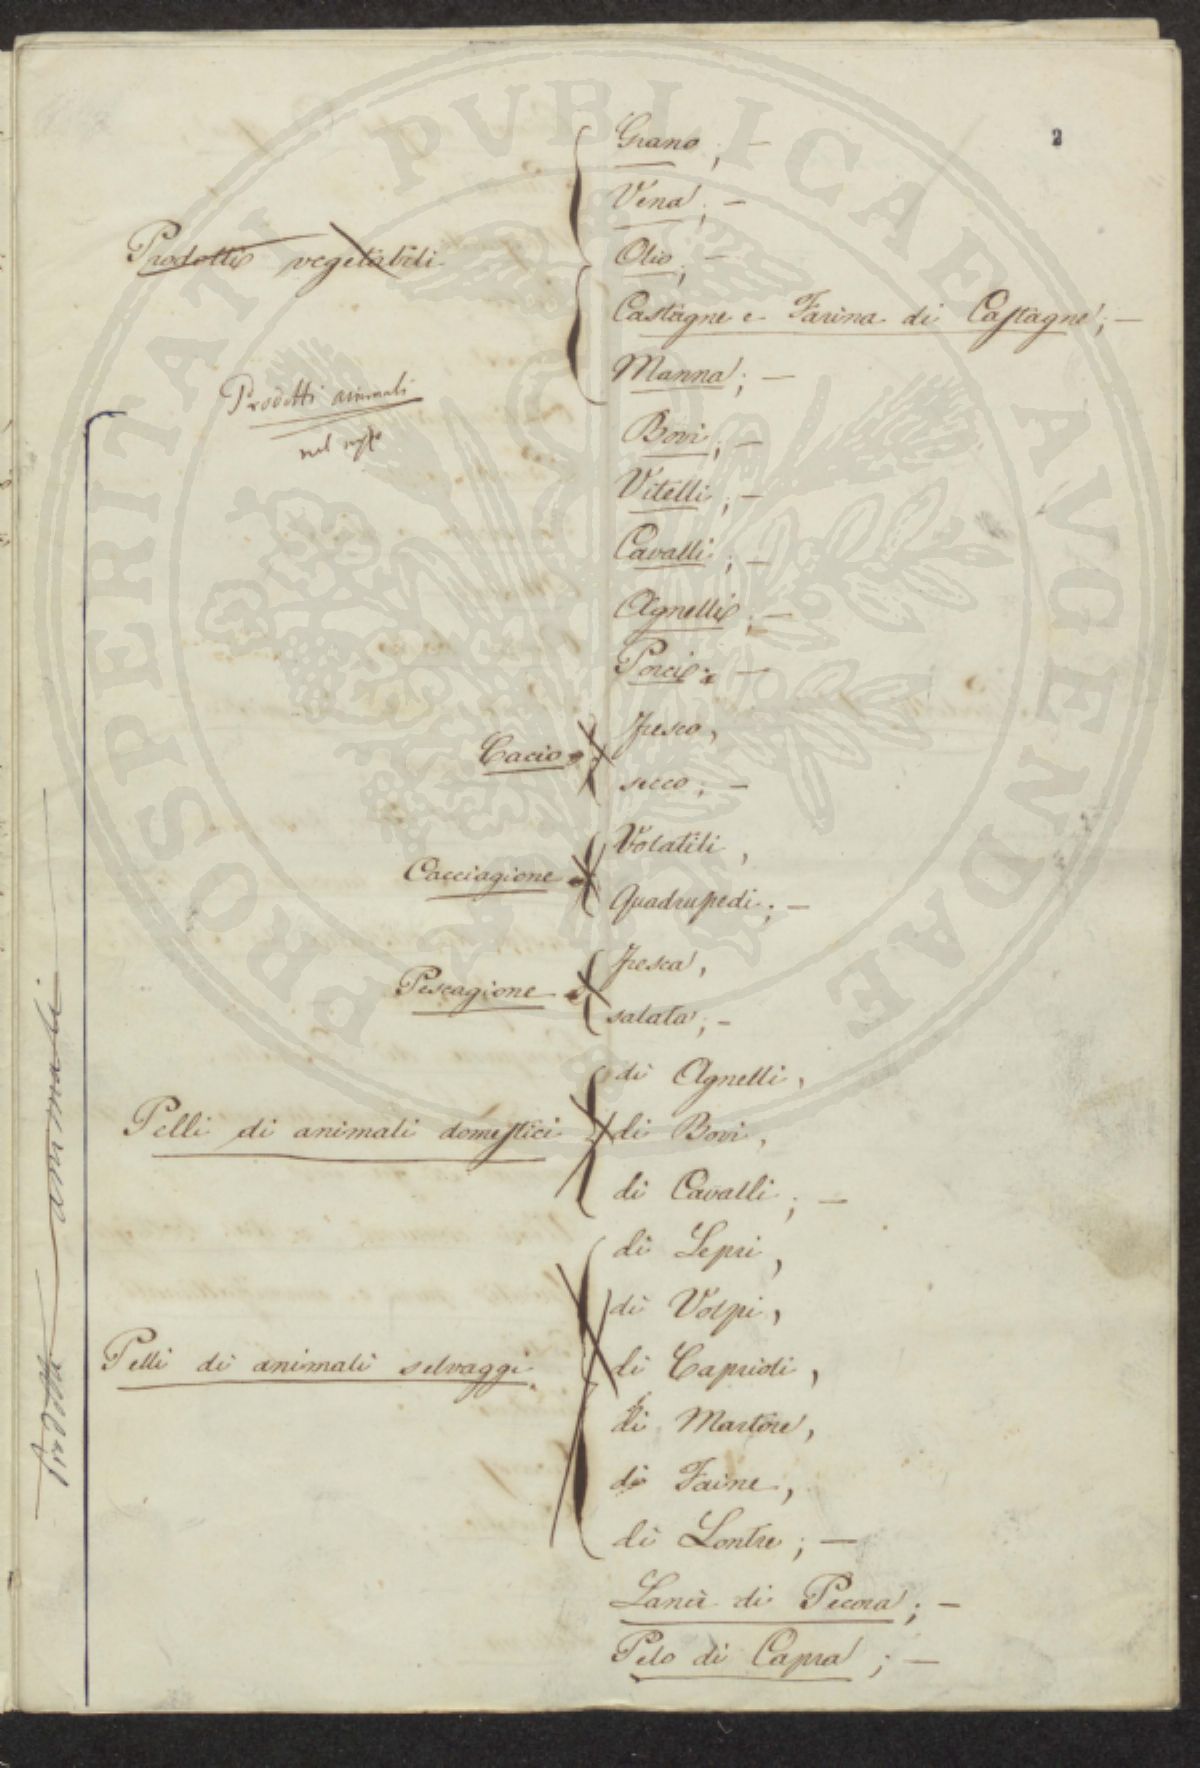 2
Grano; —
Vena; —
Prodotti vegetabili
Olio; —
Castagne e Farina di Castagne; —
Manna; —
Prodotti animali
nel
Bovi; —
Vitelli; —
Cavalli; —
Agnelli; —
Porci; —
Cacio
Fresco,
secco; —
Cacciagione
Volatili,
Quadrupedi; —
Pescagione
fresca,
salata; —
Pelli di animali domestici
di Agnelli,
di Bovi,
di Cavalli; —
Pelli di animali selvaggi.
di Lepri,
di Volpi,
di Caprioli,
di Martore,
di Faine,
di Lontre; —
Lana di Pecora; —
Pelo di Capra; —
Prodotti animali
PROSPERITATI PVBLICAE AVGENDAE